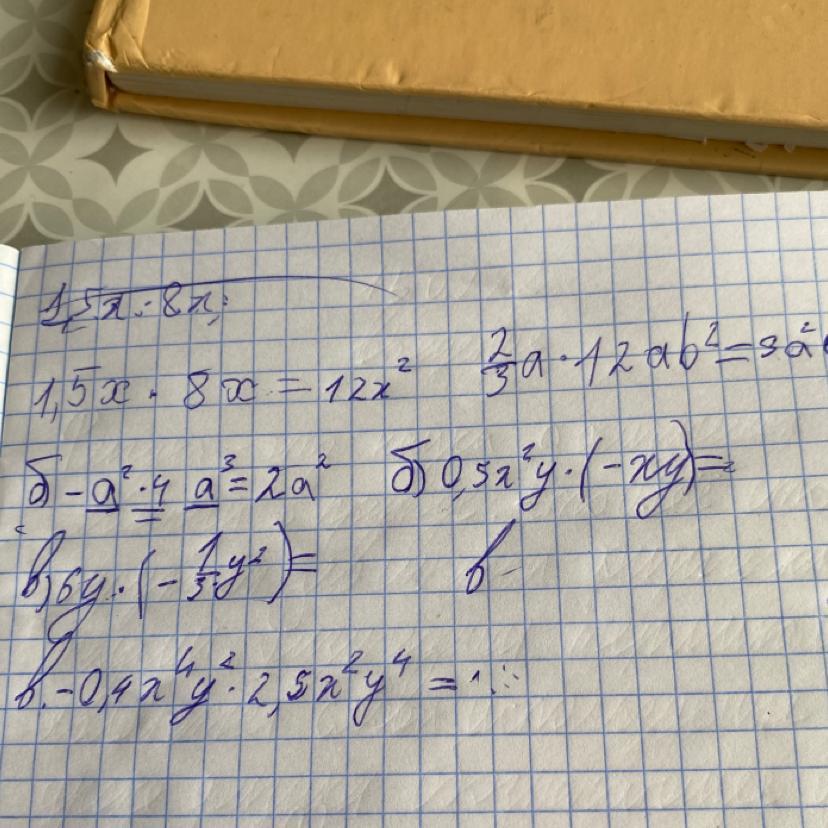 1,5x · 8x
1,5x · 8x = 12x²
2/3 a · 12ab² = 8a²
б) -a² · 4 a³ = 2a²
б) 0,5x²y · (-xy) =
в) 6y · (-1/3 y²) =
в
в. -0,4x⁴y² · 2,5x²y⁴ =